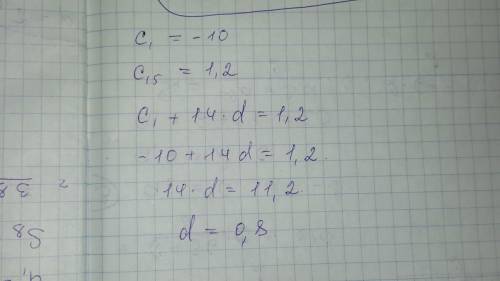 c₁ = -10
c₁₅ = 1,2
c₁ + 14·d = 1,2
-10 + 14d = 1,2
14·d = 11,2
d = 0,8